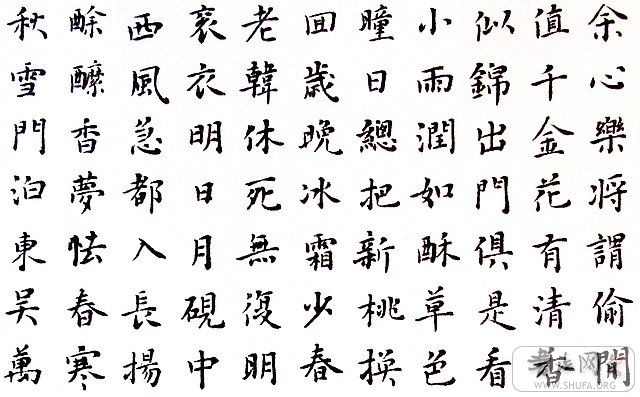 余心樂將謂偷閒
值千金花有清香
似錦出門俱是看
小雨潤如酥草色
曈日總把新桃換
囬歲晚冰霜少春
老韓休死無復明
裘衣明日月硯中
西風急都入長揚
酴醿香夢怯春寒
秋雪門泊東吳萬
WWW.SHUFA.ORG